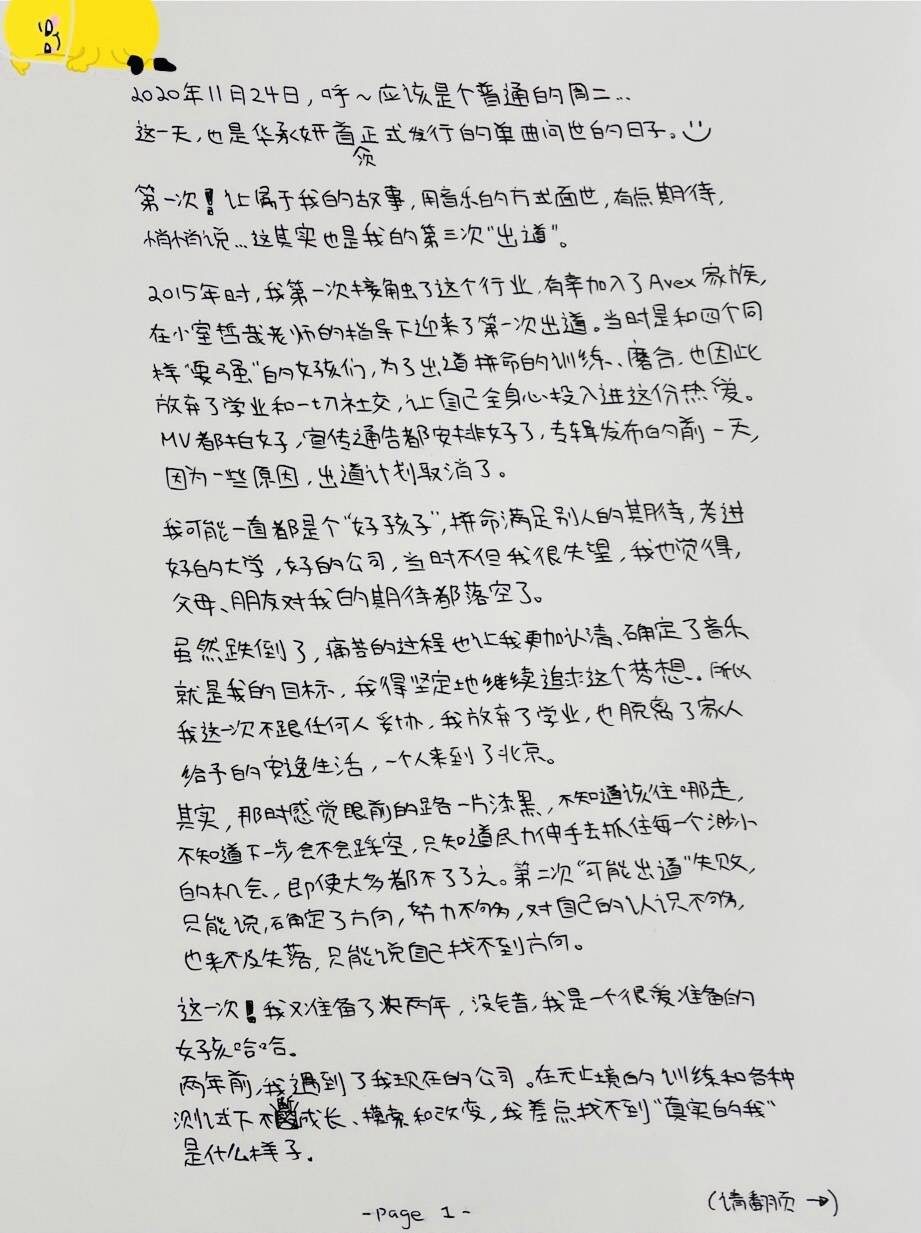 2020年11月24日，呼~应该是个普通的周二...
这一天，也是华承妍首正式发行的单曲问世的日子。
第一次！让属于我的故事，用音乐的方式面世，有点期待，
悄悄说...这其实也是我的第三次"出道"。
2015年时，我第一次接触了这个行业，有幸加入了Avex家族，
在小室哲哉老师的指导下迎来了第一次出道。当时是和四个同
样"要强"的女孩们，为了出道拼命的训练、磨合，也因此
放弃了学业和一切社交，让自己全身心投入进这份热爱。
MV都拍好，宣传通告都安排好了，专辑发布的前一天，
因为一些原因，出道计划取消了。
我可能一直都是个"好孩子"，拼命满足别人的期待，考进
好的大学，好的公司，当时不但我很失望，我也觉得，
父母、朋友对我的期待都落空了。
虽然跌倒了，痛苦的过程也让我更加认清、确定了音乐
就是我的目标，我得坚定地继续追求这个梦想。所以
我这一次不跟任何人妥协，我放弃了学业，也脱离了家人
给予的安逸生活，一个人来到了北京。
其实，那时感觉眼前的路一片漆黑，不知道该往哪走，
不知道下一步会不会踩空，只知道尽力伸手去抓住每一个渺小
的机会，即使大多都不了了之。第二次"可能出道"失败，
只能说，确定了方向，努力不够，对自己的认识不够，
也来不及失落，只能说自己找不到方向。
这一次！我又准备了快两年，没错，我是一个很爱准备的
女孩哈哈。
两年前，我遇到了我现在的公司。在无止境的训练和各种
测试下不断成长、摸索和改变，我差点找不到"真实的我"
是什么样子。
(请翻页→)
-page 1-